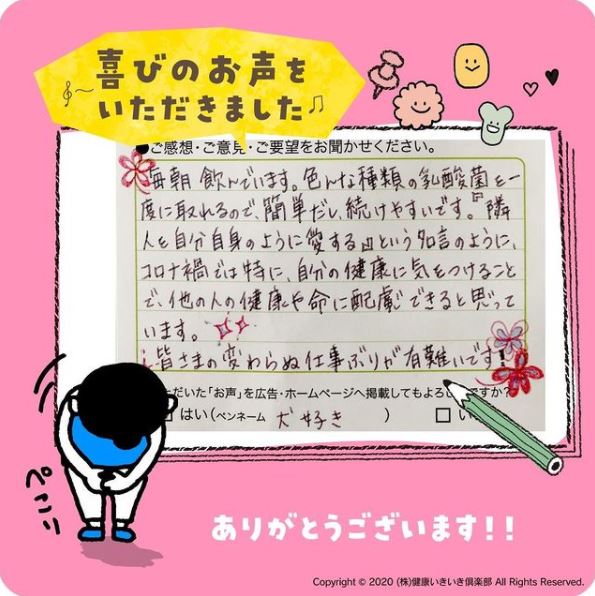 喜びのお声を
いただきました♫
●ご感想・ご意見・ご要望をお聞かせください。
毎朝飲んでいます。色んな種類の乳酸菌を一
度に取れるので、簡単だし、続けやすいです。『隣
人を自分自身のように愛する』という名言のように、
コロナ禍では特に、自分の健康に気をつけること
で、他の人の健康や命に配慮できると思って
います。
皆さまの変わらぬ仕事ぶりが有難いです!
ただいた「お声」を広告・ホームページへ掲載してもよろし ですか?
はい(ペンネーム 犬好き ) □ い
ぺこり
ありがとうございます!!
Copyright © 2020 (株)健康いきいき倶楽部 All Rights Reserved.